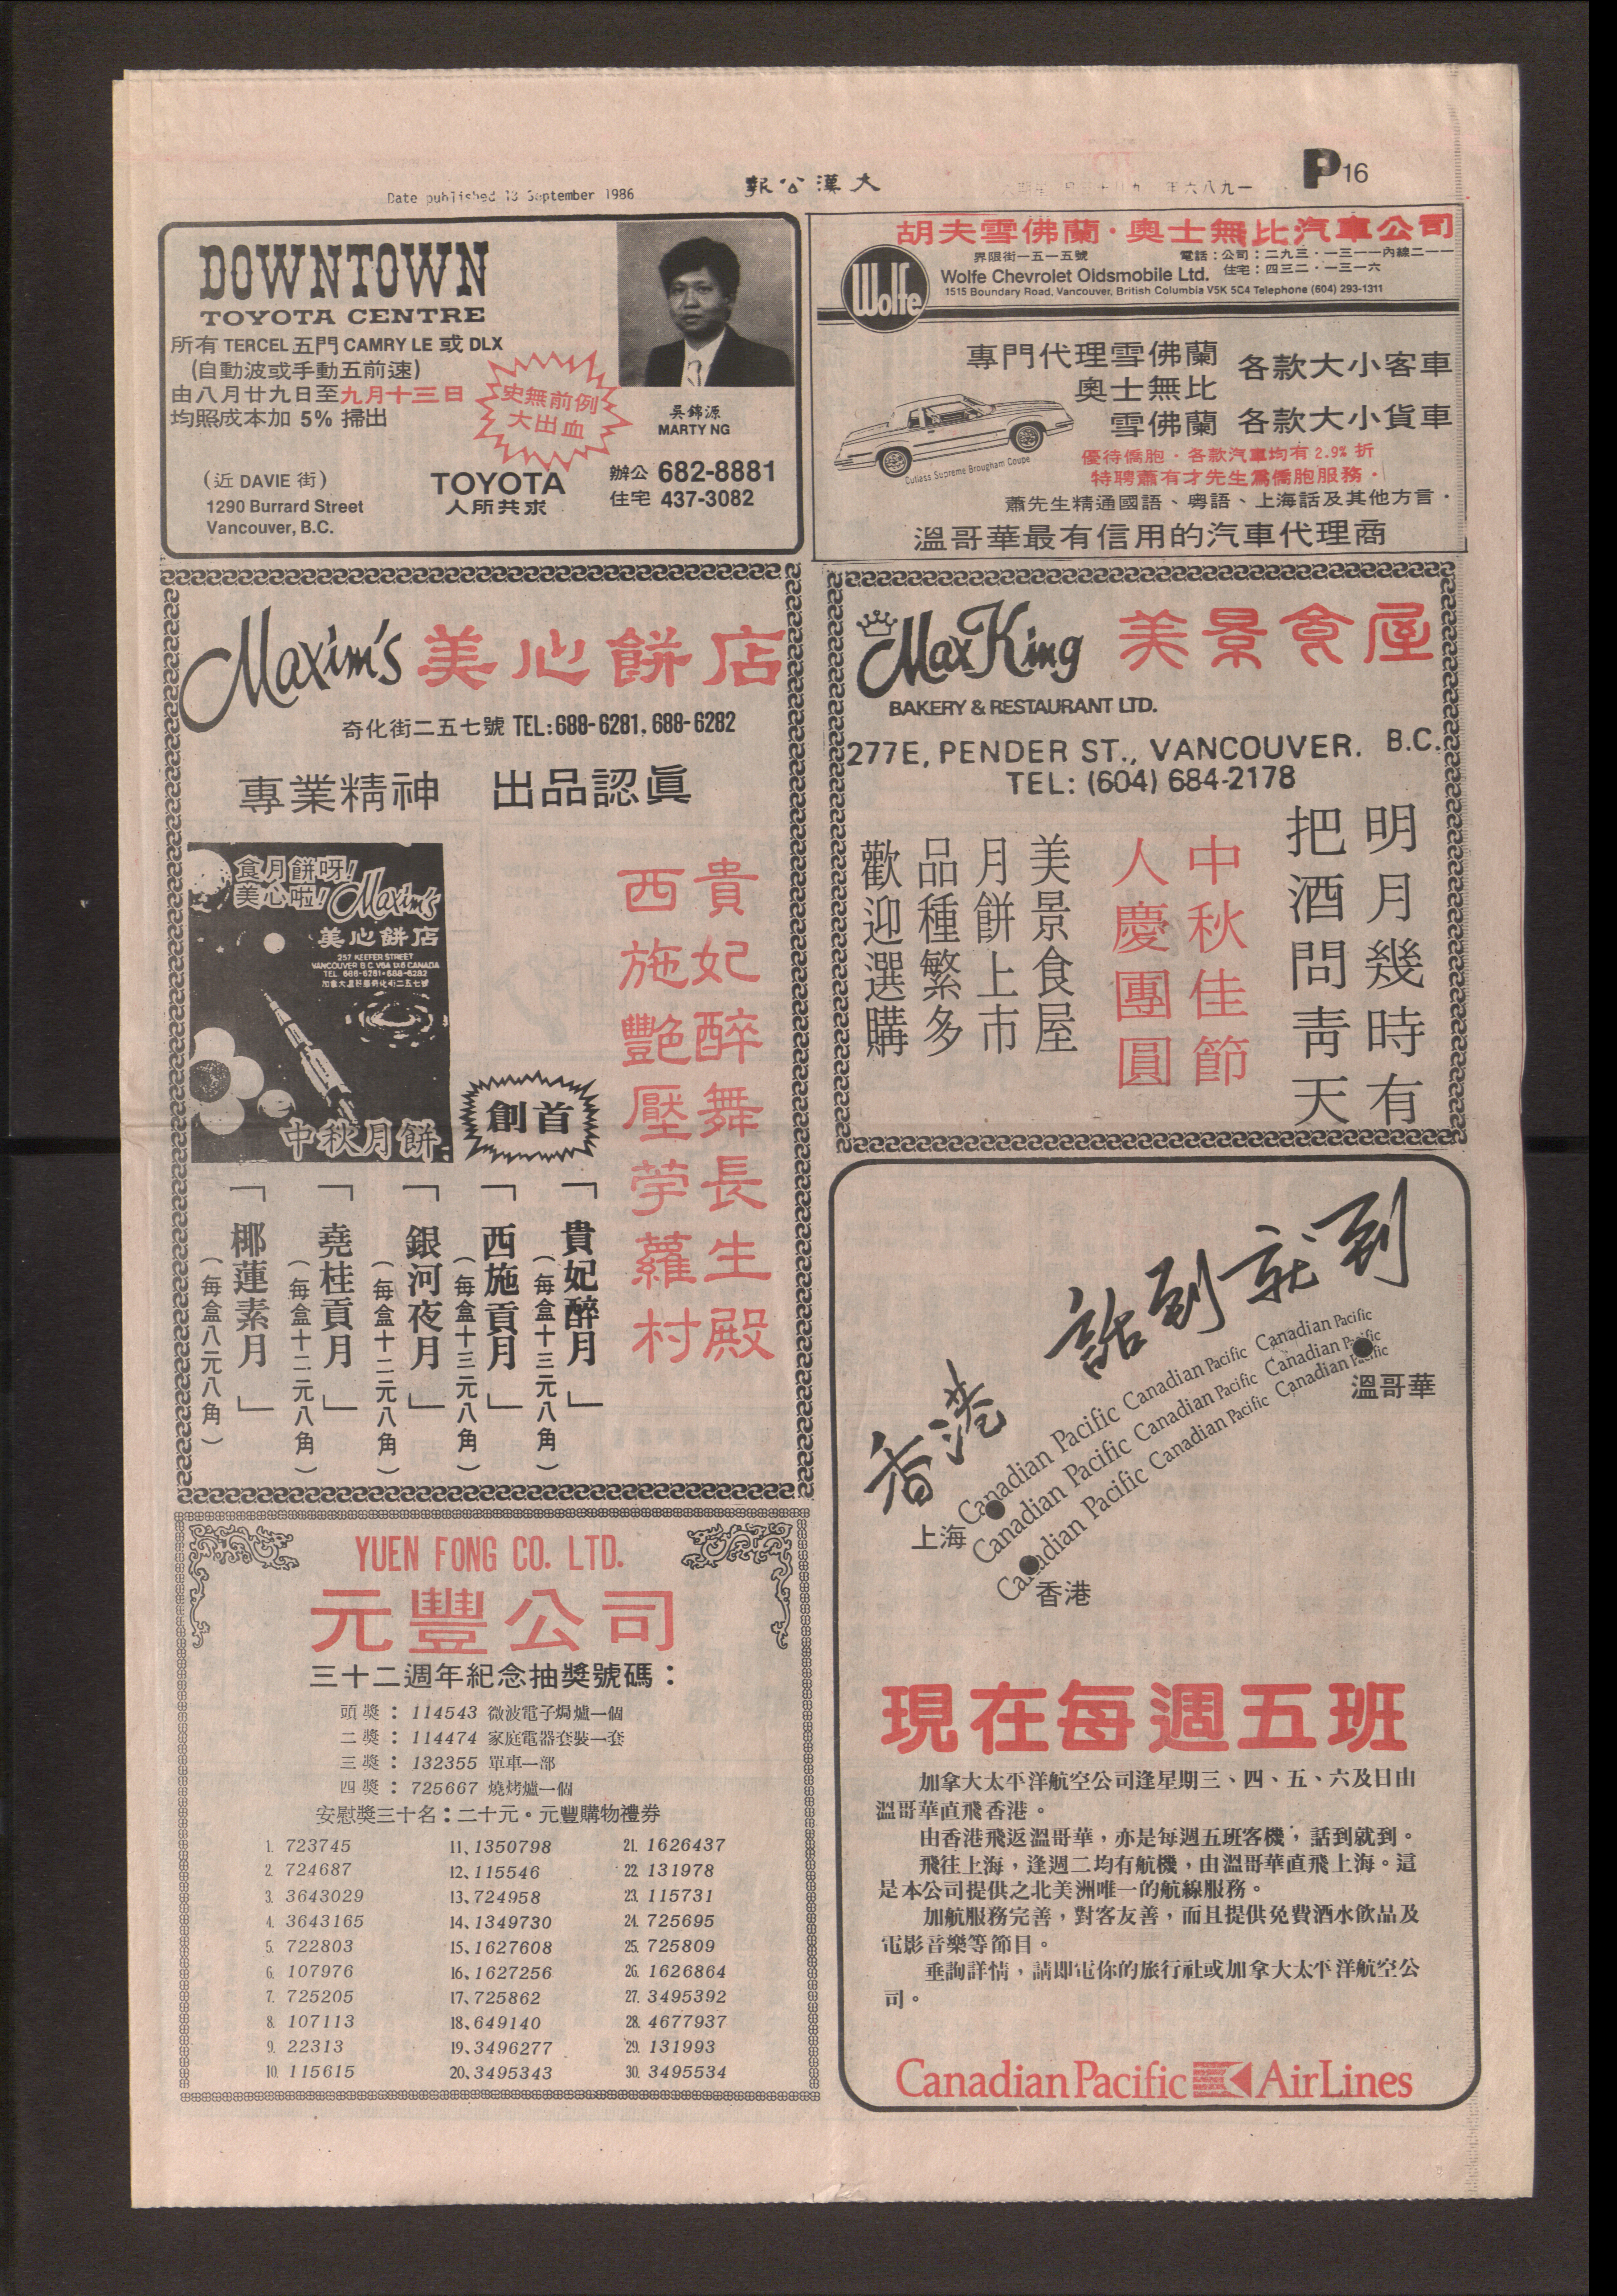 Date published 13 September 1986
報公漢大
P16
DOWNTOWN
TOYOTA CENTRE
所有 TERCEL 五門 CAMRY LE 或 DLX
(自動波或手動五前速)
由八月廿九日至九月十三日
均照成本加 5% 掃出
史無前例
大出血
吳錦源
MARTY NG
(近 DAVIE 街)
1290 Burrard Street
Vancouver, B.C.
TOYOTA
人所共求
辦公 682-8881
住宅 437-3082
胡夫雪佛蘭·奧士無比汽車公司
Wolfe
界限街一五一五號
電話:公司:二九三·一三一一內線二一一
住宅:四三二·一三一六
Wolfe Chevrolet Oldsmobile Ltd.
1515 Boundary Road, Vancouver, British Columbia V5K 5C4 Telephone (604) 293-1311
專門代理雪佛蘭
奧士無比
各款大小客車
雪佛蘭 各款大小貨車
Cutlass Supreme Brougham Coupe
優待僑胞·各款汽車均有 2.9% 折
特聘蕭有才先生為僑胞服務·
蕭先生精通國語、粵語、上海話及其他方言·
溫哥華最有信用的汽車代理商
Maxim's 美心餅店
奇化街二五七號 TEL:688-6281, 688-6282
專業精神 出品認眞
食月餅呀!
美心啦!
Maxim's
美心餅店
257 KEEFER STREET
VANCOUVER B.C. V6A 1X6 CANADA
TEL. 688-6281•688-6282
加拿大溫哥華奇化街二五七號
中秋月餅
創首
貴妃醉舞長生殿
西施艷壓苧蘿村
「貴妃醉月」
(每盒十三元八角)
「西施貢月」
(每盒十三元八角)
「銀河夜月」
(每盒十二元八角)
「堯桂貢月」
(每盒十二元八角)
「椰蓮素月」
(每盒八元八角)
Max King 美景食屋
BAKERY & RESTAURANT LTD.
277E, PENDER ST., VANCOUVER. B.C.
TEL: (604) 684-2178
明月幾時有
把酒問靑天
中秋佳節
人慶團圓
美景食屋
月餅上市
品種繁多
歡迎選購
YUEN FONG CO. LTD.
元豐公司
三十二週年紀念抽獎號碼:
頭獎: 114543 微波電子焗爐一個
二獎: 114474 家庭電器套裝一套
三獎: 132355 單車一部
四獎: 725667 燒烤爐一個
安慰獎三十名:二十元。元豐購物禮券
1. 723745
2. 724687
3. 3643029
4. 3643165
5. 722803
6. 107976
7. 725205
8. 107113
9. 22313
10. 115615
11、1350798
12、115546
13、724958
14、1349730
15、1627608
16、1627256
17、725862
18、649140
19、3496277
20、3495343
21. 1626437
22. 131978
23. 115731
24. 725695
25. 725809
26. 1626864
27. 3495392
28. 4677937
29. 131993
30. 3495534
香港 話到就到
Canadian Pacific Canadian Pacific Canadian Pacific
Canadian Pacific Canadian Pacific Canadian Pacific
Canadian Pacific Canadian Pacific Canadian Pacific
溫哥華
上海
香港
現在每週五班
加拿大太平洋航空公司逢星期三、四、五、六及日由
溫哥華直飛香港。
由香港飛返溫哥華,亦是每週五班客機,話到就到。
飛往上海,逢週二均有航機,由溫哥華直飛上海。這
是本公司提供之北美洲唯一的航線服務。
加航服務完善,對客友善,而且提供免費酒水飲品及
電影音樂等節目。
垂詢詳情,請即電你的旅行社或加拿大太平洋航空公
司。
Canadian Pacific AirLines